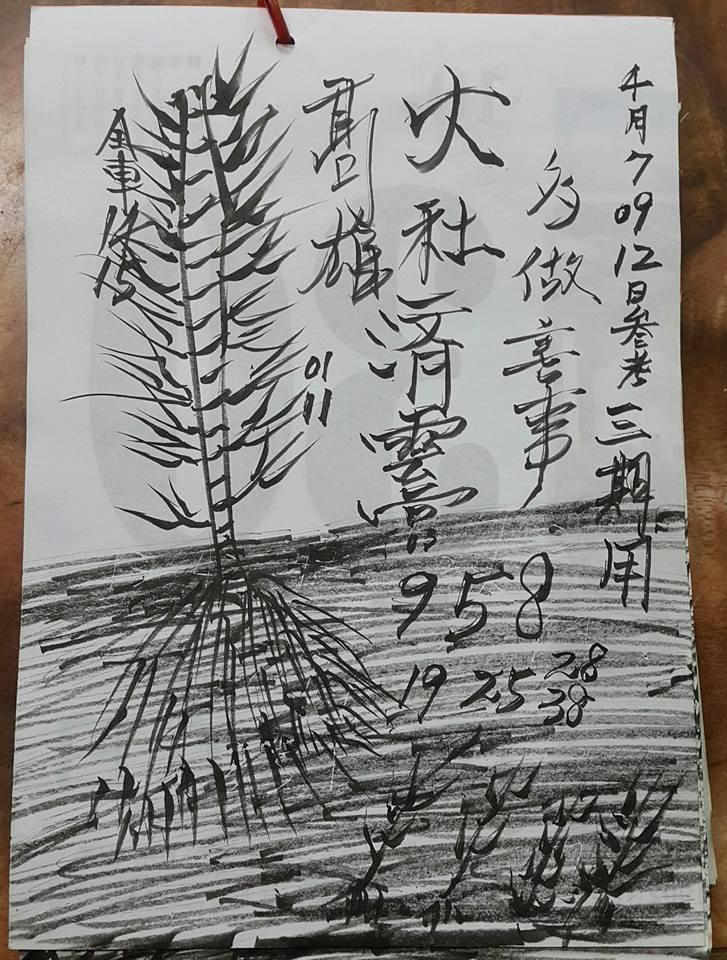 十月7 09 12日參考三期用
多做善事
火社濟雲宮
958
19 25 28
38
高雄
01
11
全車